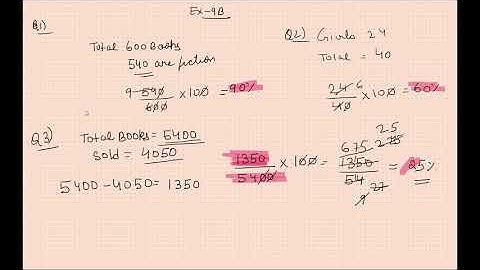 Ex-9B
Q1)
Total 600 Books
540 are fiction
9 540/600 x100 = 90%
Q2) Girls 24
Total = 40
24 6/40 x100 = 60%
Q3) Total Books = 5400
Sold = 4050
5400-4050= 1350
1350/5400 x 100 = 675 1350/54 27 = 25%
25
275
9